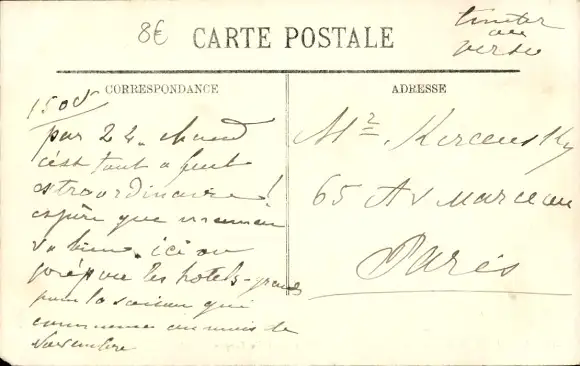 8€
CARTE POSTALE
timbre
au
verso
CORRESPONDANCE
ADRESSE
15 Oct
par 22. chaud
c'est tout a fait
extraordinaire!
espère que maman
va bien. ici on
prépare les hotels
pour la saison qui
commence au mois de
Novembre
Mr. Kerensky
65 Av Marceau
Paris